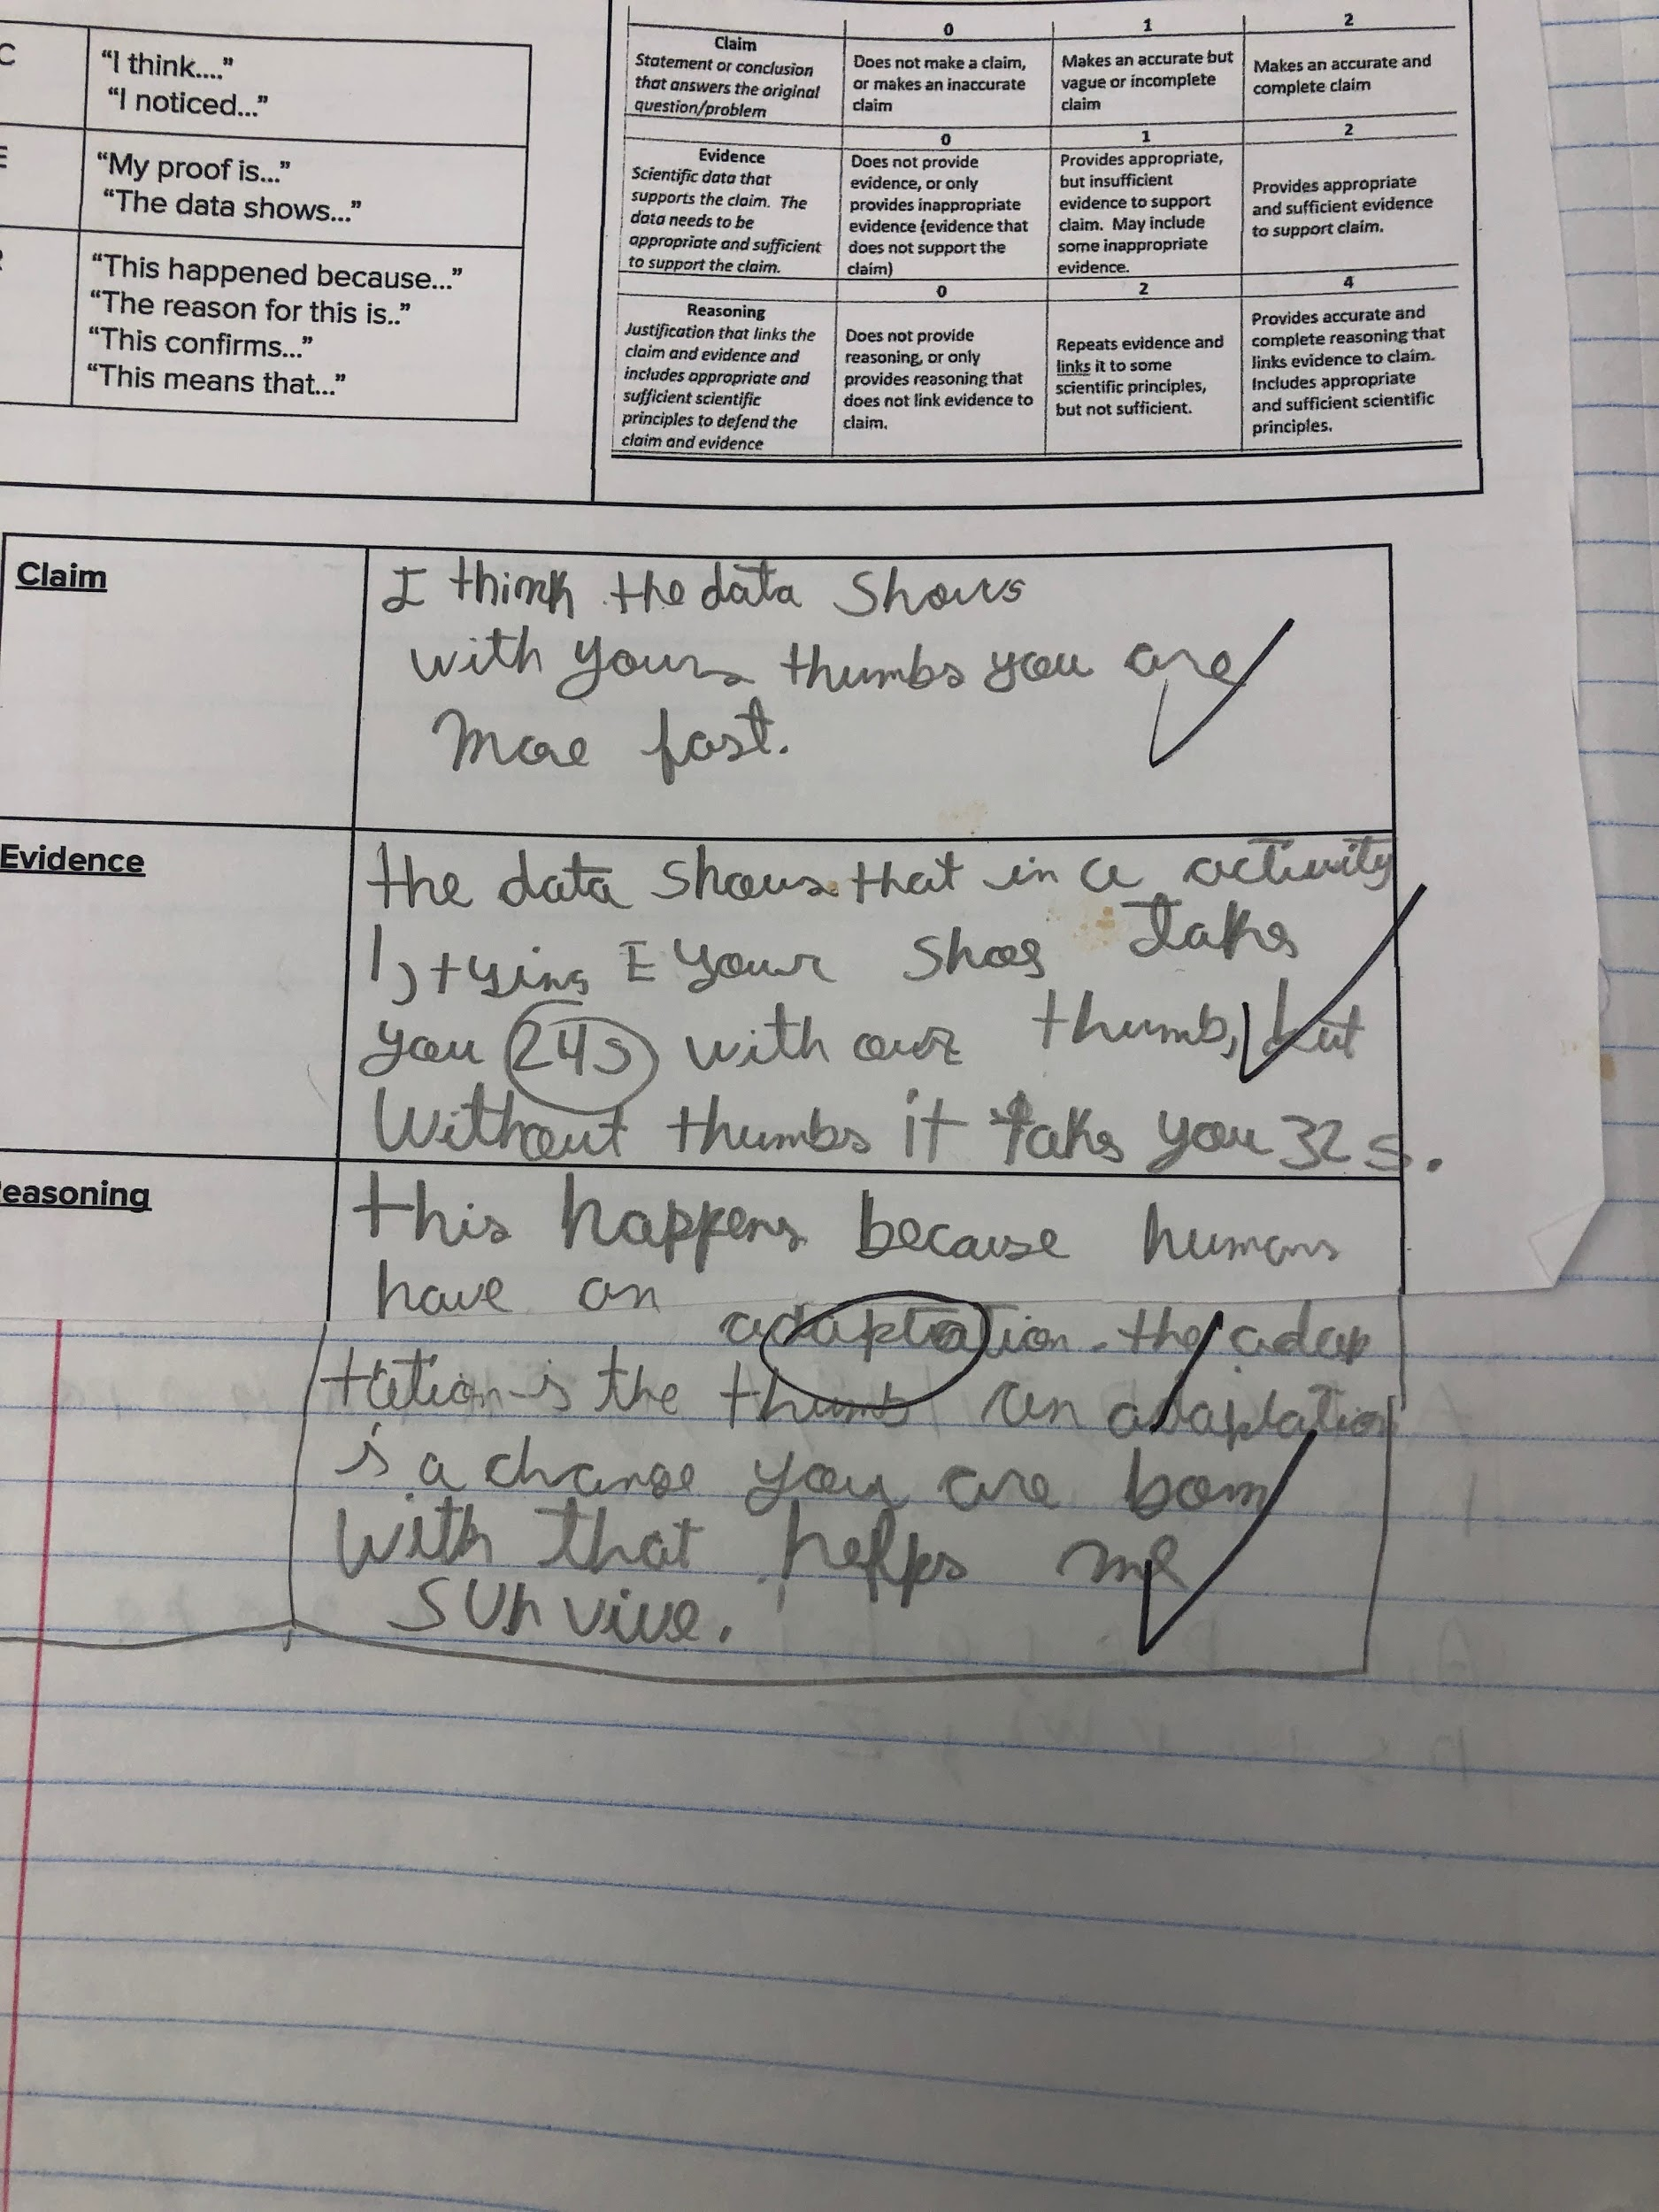 C
"I think...."
"I noticed..."
E
"My proof is..."
"The data shows..."
"This happened because..."
"The reason for this is.."
"This confirms..."
"This means that..."
Claim
Statement or conclusion
that answers the original
question/problem
0
Does not make a claim,
or makes an inaccurate
claim
1
Makes an accurate but
vague or incomplete
claim
2
Makes an accurate and
complete claim
Evidence
Scientific data that
supports the claim. The
data needs to be
appropriate and sufficient
to support the claim.
0
Does not provide
evidence, or only
provides inappropriate
evidence (evidence that
does not support the
claim)
1
Provides appropriate,
but insufficient
evidence to support
claim. May include
some inappropriate
evidence.
2
Provides appropriate
and sufficient evidence
to support claim.
Reasoning
Justification that links the
claim and evidence and
includes appropriate and
sufficient scientific
principles to defend the
claim and evidence
0
Does not provide
reasoning, or only
provides reasoning that
does not link evidence to
claim.
2
Repeats evidence and
links it to some
scientific principles,
but not sufficient.
4
Provides accurate and
complete reasoning that
links evidence to claim.
Includes appropriate
and sufficient scientific
principles.
Claim
I think the data shows
with yours thumbs you are
more fast.
Evidence
the data shows that in a activity
1, tying your shoes takes
you 24s with our thumb, but
Without thumbs it takes you 32 s.
easoning
this happens because humans
have an
adaptation. the adap
tation is the thumb an adaptation
is a change you are born
with that helps me
survive.